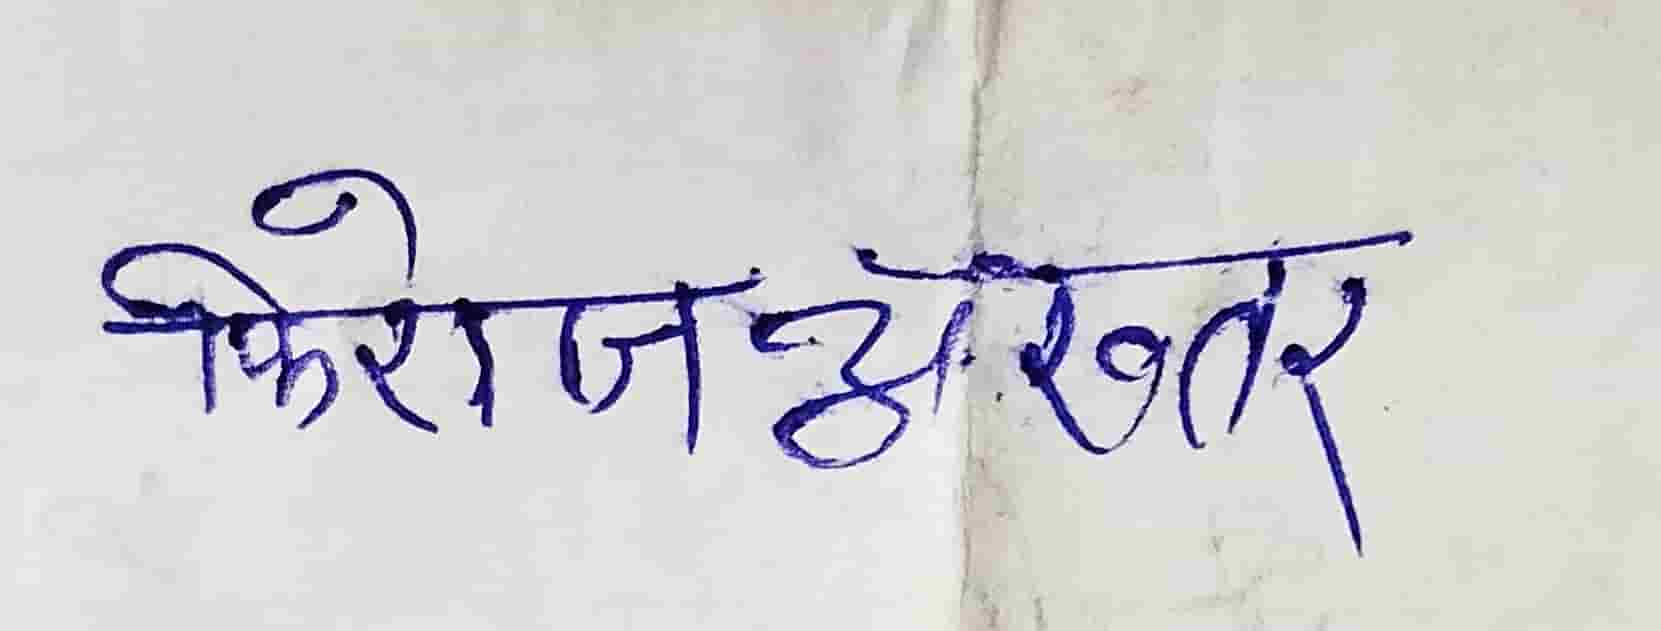 फिरोज अख्तर